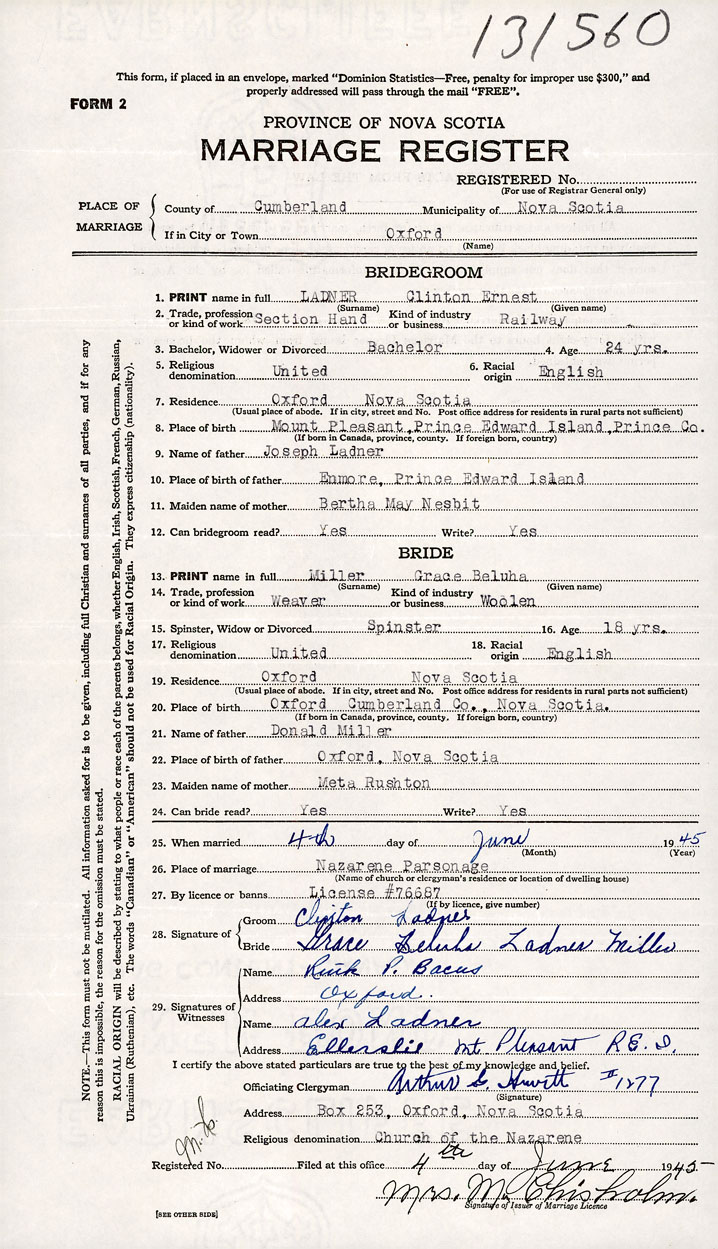 131560
This form, if placed in an envelope, marked "Dominion Statistics—Free, penalty for improper use $300," and
properly addressed will pass through the mail "FREE".
FORM 2
PROVINCE OF NOVA SCOTIA
MARRIAGE REGISTER
REGISTERED No.
(For use of Registrar General only)
PLACE OF MARRIAGE
County of Cumberland Municipality of Nova Scotia
If in City or Town Oxford
(Name)
BRIDEGROOM
1. PRINT name in full LADNER Clinton Ernest
(Surname) (Given name)
2. Trade, profession or kind of work Section Hand Kind of industry or business Railway
3. Bachelor, Widower or Divorced Bachelor 4. Age 24 yrs.
5. Religious denomination United 6. Racial origin English
7. Residence Oxford Nova Scotia
(Usual place of abode. If in city, street and No. Post office address for residents in rural parts not sufficient)
8. Place of birth Mount Pleasant, Prince Edward Island, Prince Co.
(If born in Canada, province, county. If foreign born, country)
9. Name of father Joseph Ladner
10. Place of birth of father Enmore, Prince Edward Island
11. Maiden name of mother Bertha May Nesbit
12. Can bridegroom read? Yes Write? Yes
BRIDE
13. PRINT name in full Miller Grace Beluha
(Surname) (Given name)
14. Trade, profession or kind of work Weaver Kind of industry or business Woolen
15. Spinster, Widow or Divorced Spinster 16. Age 18 yrs.
17. Religious denomination United 18. Racial origin English
19. Residence Oxford Nova Scotia
(Usual place of abode. If in city, street and No. Post office address for residents in rural parts not sufficient)
20. Place of birth Oxford Cumberland Co., Nova Scotia.
(If born in Canada, province, county. If foreign born, country)
21. Name of father Donald Miller
22. Place of birth of father Oxford, Nova Scotia
23. Maiden name of mother Meta Rushton
24. Can bride read? Yes Write? Yes
25. When married 4th day of June 1945
(Month) (Year)
26. Place of marriage Nazarene Parsonage
(Name of church or clergyman's residence or location of dwelling house)
27. By licence or banns License #76687
(If by licence, give number)
28. Signature of
Groom Clinton Ladner
Bride Grace Beluha Ladner Miller
29. Signatures of Witnesses
Name P. Bacus
Address Oxford.
Name Alex Ladner
Address Ellerslie Mt Pleasant P.E.I.
I certify the above stated particulars are true to the best of my knowledge and belief.
Officiating Clergyman Arthur G. Hewitt #1277
(Signature)
Address Box 253, Oxford, Nova Scotia
Religious denomination Church of the Nazarene
Registered No. Filed at this office 4th day of June 1945
Mrs. M. Chisholm.
Signature of Issuer of Marriage Licence
[SEE OTHER SIDE]
NOTE.—This form must not be mutilated. All information asked for is to be given, including full Christian and surnames of all parties, and if for any
reason this is impossible, the reason for the omission must be stated.
RACIAL ORIGIN will be described by stating to what people or race each of the parents belongs, whether English, Irish, Scottish, French, German, Russian,
Ukrainian (Ruthenian), etc. The words "Canadian" or "American" should not be used for Racial Origin. They express citizenship (nationality).